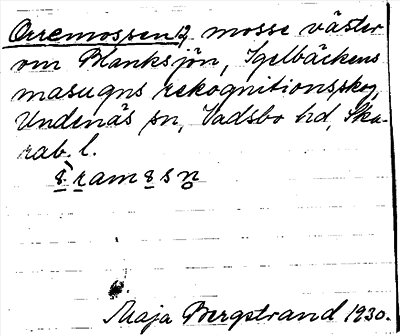 Orremossen, mosse väster
om Blanksjön, Igelbäckens
masugns rekognitionsskog,
Undenäs sn, Vadsbo hd, Ska-
rab. l.
Maja Bergstrand 1930.